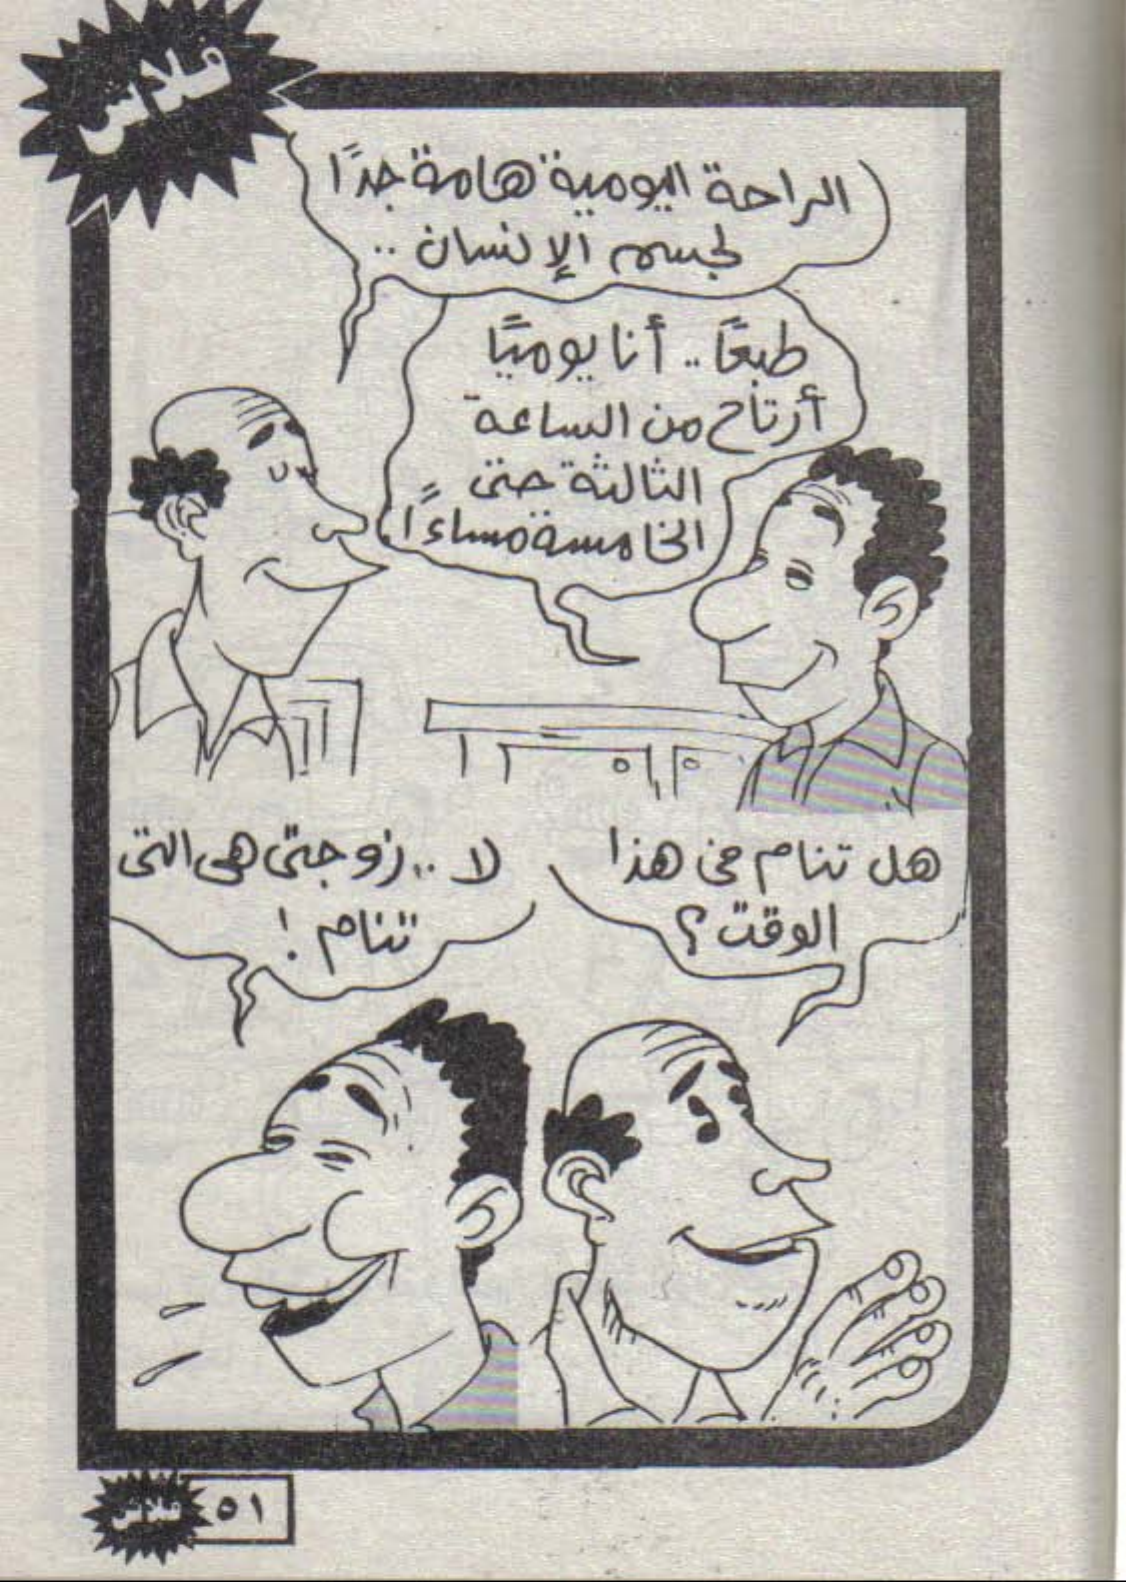 فلاش
الراحة اليومية هامة جدًا
لجسم الإنسان ..
طبعًا .. أنا يوميًا
أرتاح من الساعة
الثالثة حتى
الخامسة مساءً ا
هل تنام فى هذا
الوقت ؟
لا .. زوجتى هى التى
تنام !
فلاش ٥١